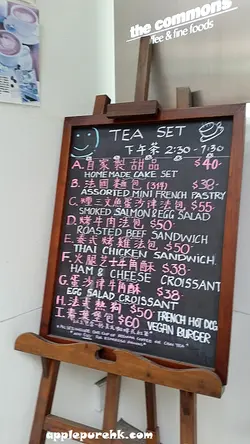 the commons
coffee & fine foods
TEA SET
下午茶 2:30 - 7:30
A. 自家製甜品 $40
HOMEMADE CAKE SET
B. 法國麵包
ASSORTED MINI FRENCH PASTRY
C. 煙三文魚蛋沙律法包 $55
SMOKED SALMON & EGG SALAD
D. 燒牛肉法包 $50
ROASTED BEEF SANDWICH
E. 泰式燒雞法包 $50
THAI CHICKEN SANDWICH
F. 火腿芝士牛角酥 $38
HAM & CHEESE CROISSANT
G. 蛋沙律牛角酥 $38
EGG SALAD CROISSANT
H. 法素熱狗 $50 FRENCH HOT DOG
I. 素漢堡包 $60 VEGAN BURGER
applepurehk.com